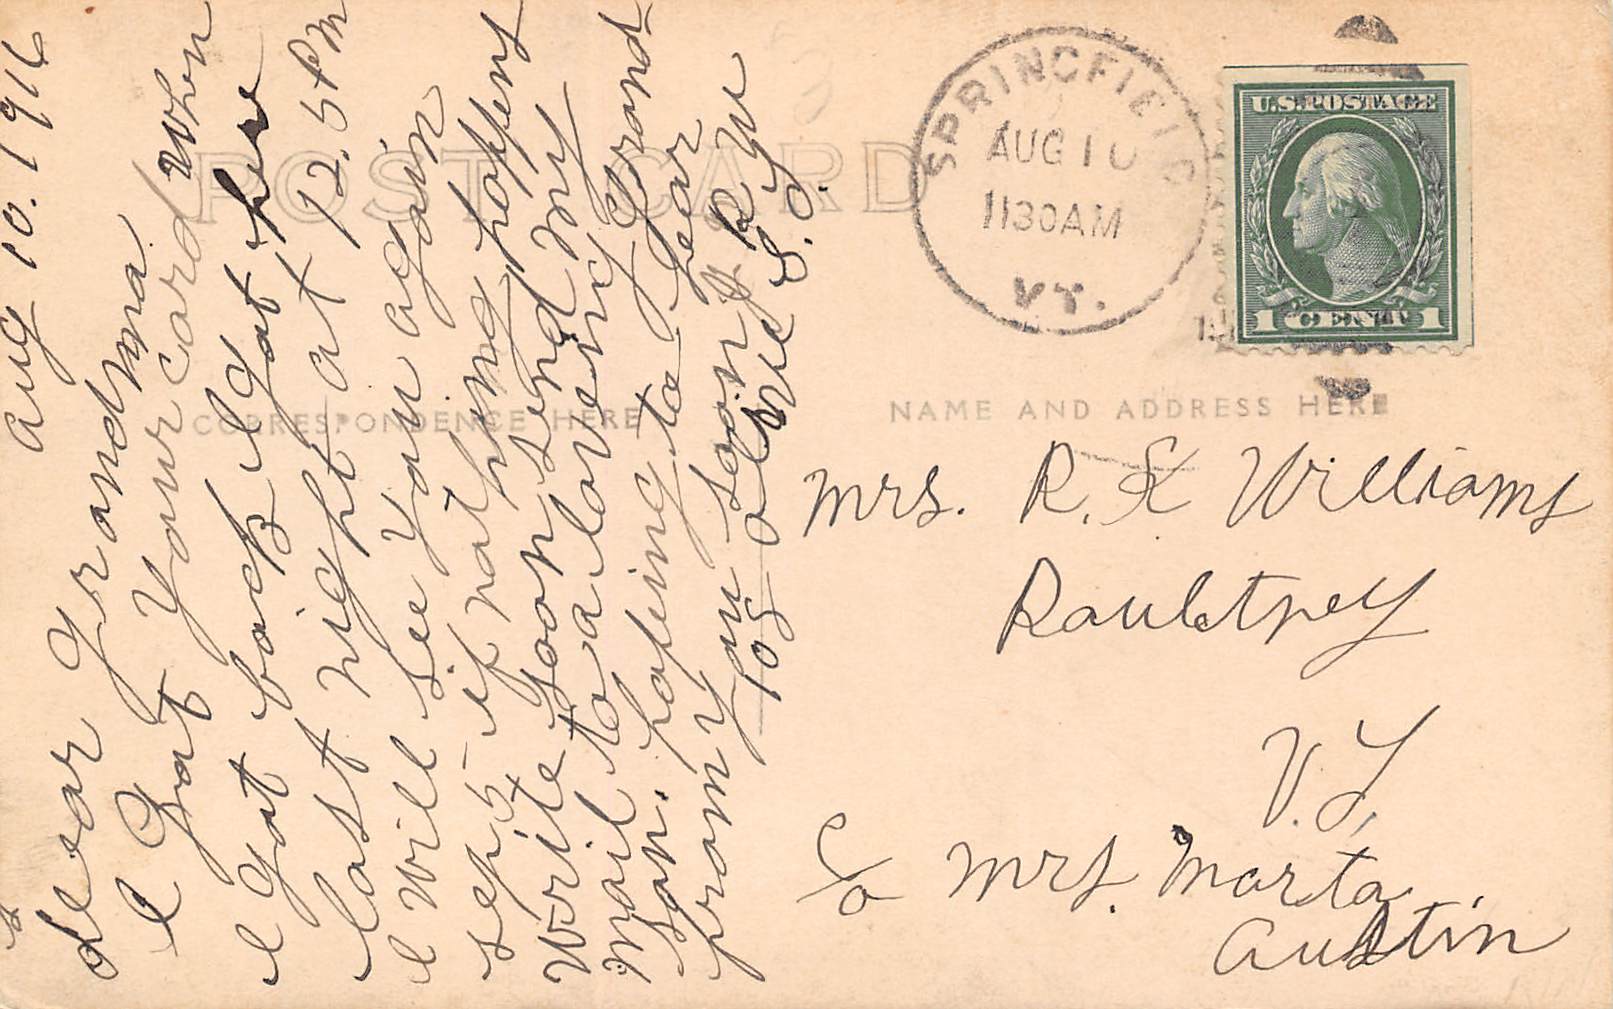 POST CARD
CORRESPONDENCE HERE
NAME AND ADDRESS HERE
SPRINGFIELD
AUG 10
1130AM
VT.
U.S. POSTAGE
1 CENT 1
Aug 10. 1916
Dear Grandma
I Got Your Card When
I Got back I Got here
last night at 12.5 PM
I Will see You again
sep 5 if nothing happens
Write soon send my
mail to a loveing Grand
son. hopeing to hear
from You soon
108 Olive S.
Mrs. R. E Williams
Poultney
V.T.
C/o Mrs. Marta
Austin